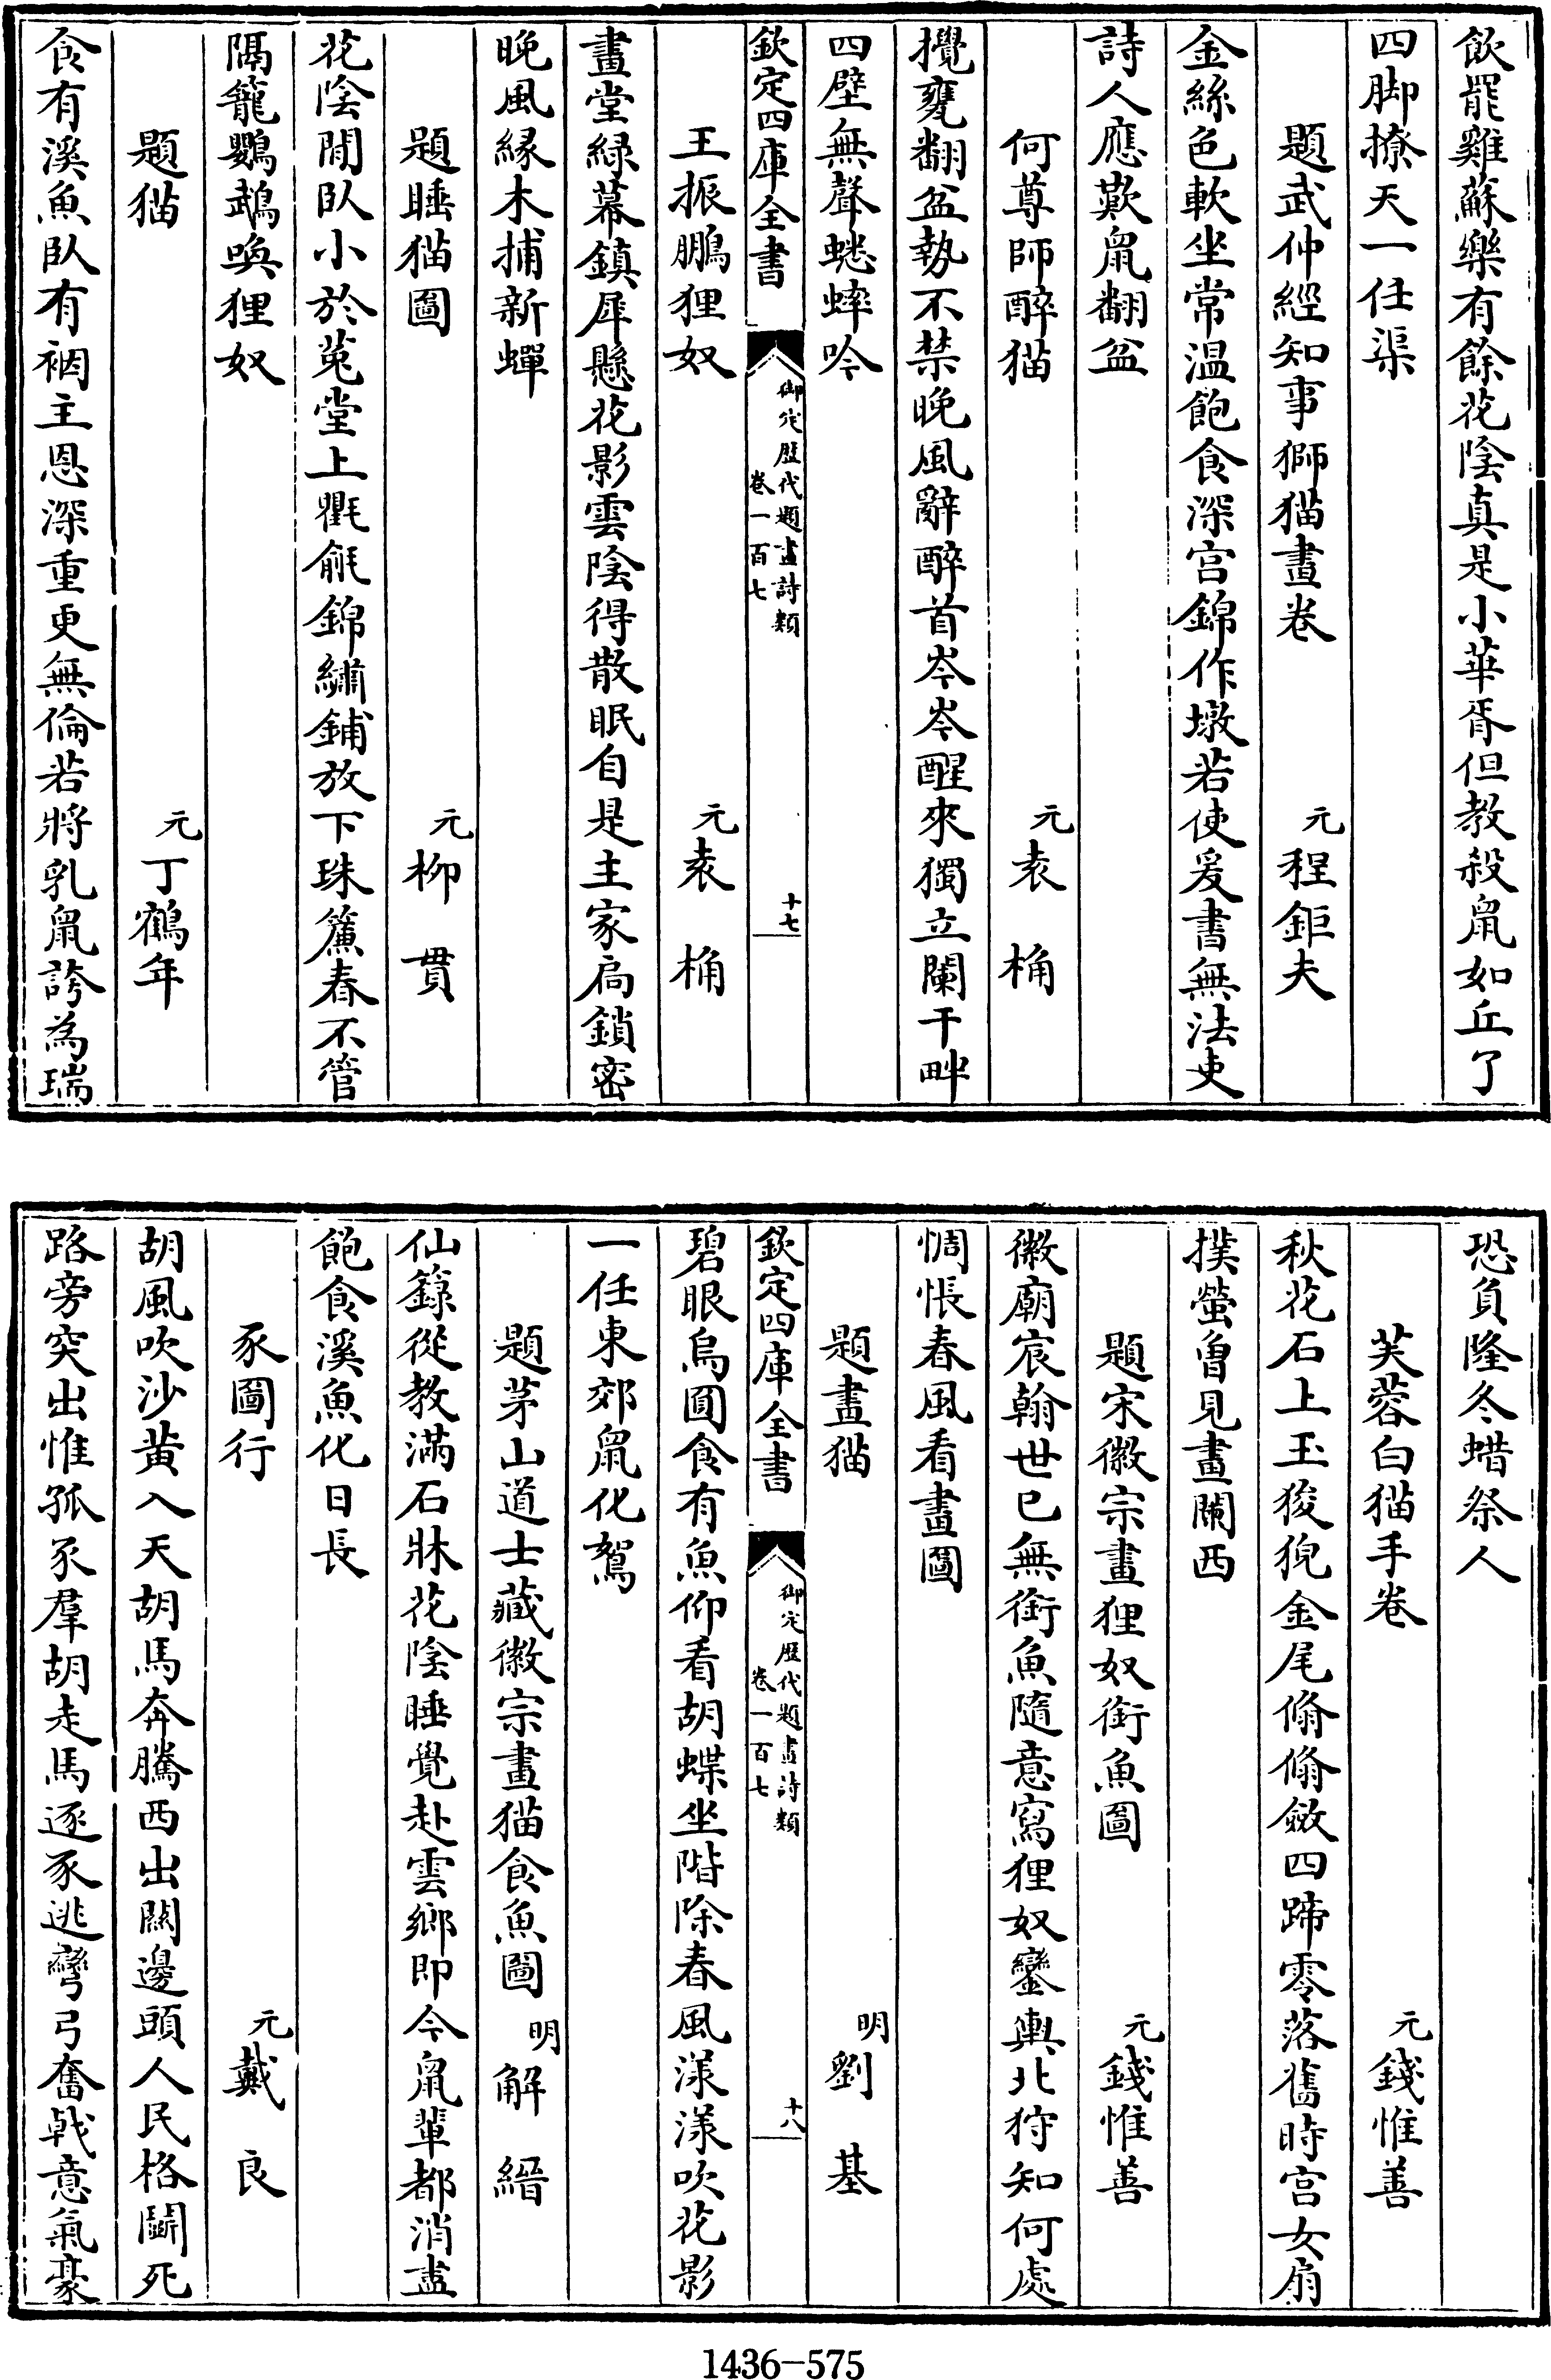 飲罷雞蘇樂有餘花陰真是小華胥但教殺鼠如丘了
四脚撩天一任渠
題武仲經知事獅猫畫卷 元程鉅夫
金絲色軟坐常温飽食深宫錦作墩若使爰書無法吏
詩人應歎鼠翻盆
何尊師醉猫 元袁桷
攪甕翻盆勢不禁晚風辭醉首岑岑醒來獨立闌干畔
四壁無聲蟋蟀吟
欽定四庫全書 御定歴代題畫詩類 卷一百七 十七
王振鵬狸奴 元袁桷
畫堂緑幕鎮犀懸花影雲陰得散眠自是主家扃鎖密
晚風緣木捕新蟬
題睡猫圖 元柳貫
花陰閒臥小於菟堂上氍毹錦繡鋪放下珠簾春不管
隔籠鸚鵡喚狸奴
題猫 元丁鶴年
食有溪魚臥有裀主恩深重更無倫若將乳鼠誇為瑞
恐負隆冬蜡祭人
芙蓉白猫手卷 元錢惟善
秋花石上玉狻猊金尾翛翛斂四蹄零落舊時宫女扇
撲螢曾見畫闌西
題宋徽宗畫狸奴銜魚圖 元錢惟善
徽廟宸翰世已無銜魚隨意寫狸奴鑾輿北狩知何處
惆悵春風看畫圖
題畫猫 明劉基
欽定四庫全書 御定歴代題畫詩類 卷一百七 十八
碧眼烏圓食有魚仰看胡蝶坐階除春風漾漾吹花影
一任東郊鼠化鴽
題茅山道士藏徽宗畫猫食魚圖 明解縉
仙籙從教滿石牀花陰睡覺赴雲鄉即今鼠輩都消盡
飽食溪魚化日長
豕圖行 元戴良
胡風吹沙黄入天胡馬奔騰西出關邊頭人民格鬬死
路旁突出惟孤豕羣胡走馬逐豕逃彎弓奮戟意氣豪
1436-575